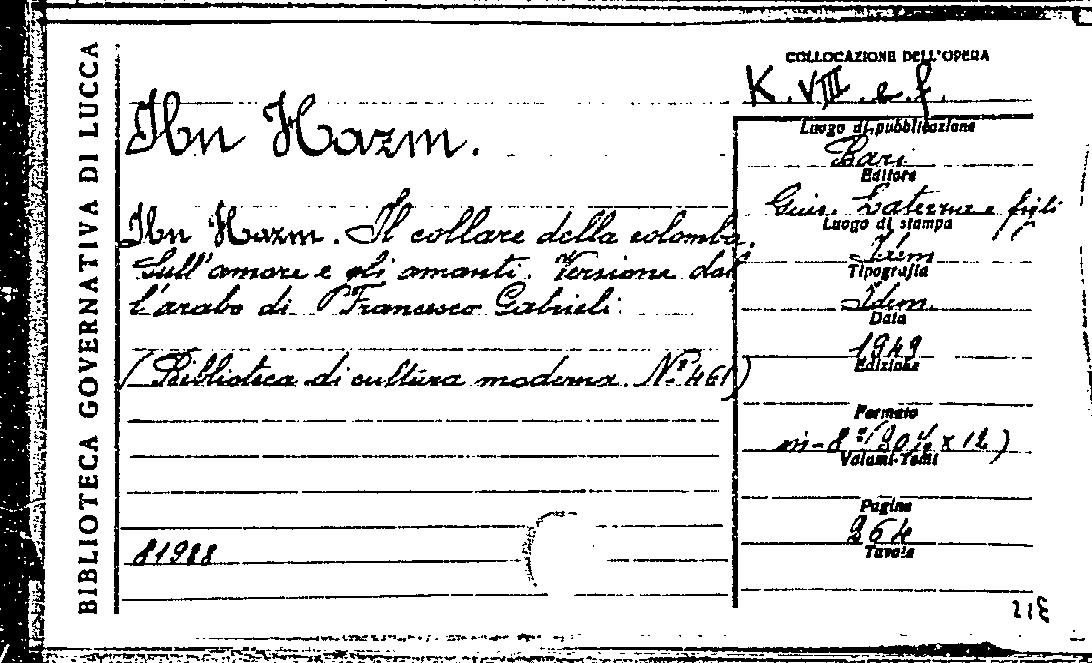 BIBLIOTECA GOVERNATIVA DI LUCCA
COLLOCAZIONE DELL'OPERA
K. VIII. e. f.
Ibn Hazm.
Ibn Hazm. Il collare della colomba.
Sull'amore e gli amanti. Versione dal
l'arabo di Francesco Gabrieli.
(Biblioteca di cultura moderna. N.° 461)
81988
Luogo di pubblicazione
Bari
Editore
Gius. Laterza e figli
Luogo di stampa
Idem
Tipografia
Idem.
Data
1949
Edizione
Formato
in-8°
x 12)
Volumi-Tomi
Pagine
264
Tavole